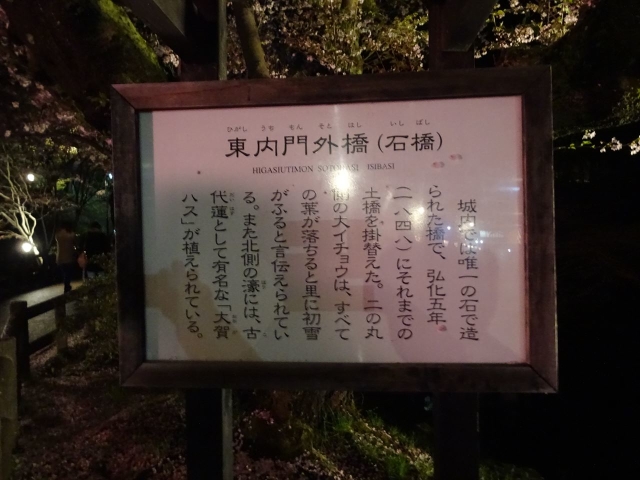 ひがし うち もん そと ばし いし ばし
東内門外橋(石橋)
HIGASIUTIMON SOTOBASI ISIBASI
城内では唯一の石で造
られた橋で、弘化五年
(一八四八)にそれまでの
土橋を掛替えた。二の丸
側の大イチョウは、すべて
の葉が落ちると里に初雪
がふると言伝えられてい
る。また北側の濠には、古
代蓮として有名な「大賀
ハス」が植えられている。